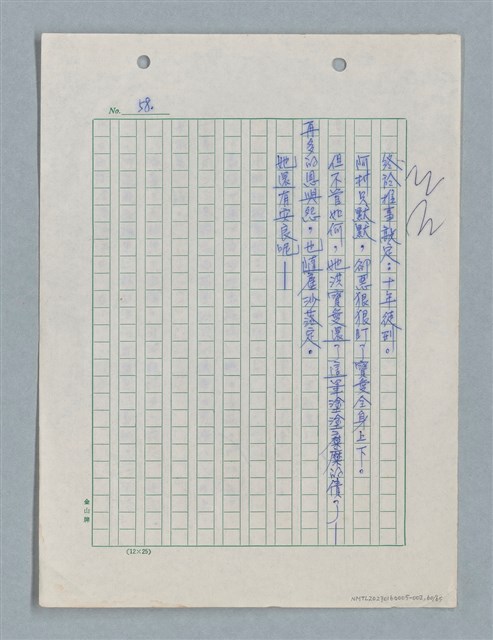 No. 58.
終於推事敲定：十年徒刑。
阿村只默默，卻惡狠狠盯了寶愛全身上下。
但不管如何，她洪寶愛還了這筆塗塗麋麋的債了——
再多的恩與怨，也隨塵沙落定。
她還有安良呢——
金山牌
(12×25)